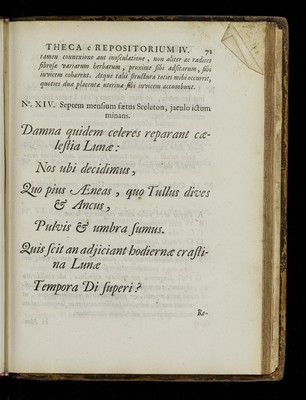 THECA e REPOSITORIUM IV. 71
tamen connexione aut inosculatione, non aliter ac radices
fibrosæ variarum herbarum, proxime sibi adsitarum, sibi
invicem cohærent. Atque talis structura toties mihi occurrit,
quoties duæ placentæ uterinæ sibi invicem accumbunt.
No. XIV. Septem mensium fœtus Sceleton, jaculo ictum
minans.
Damna quidem celeres reparant cæ-
lestia Lunæ:
Nos ubi decidimus,
Quo pius Æneas, quo Tullus dives
& Ancus,
Pulvis & umbra sumus.
Quis scit an adjiciant hodiernæ crasti-
na Lunæ
Tempora Di superi?
Re-